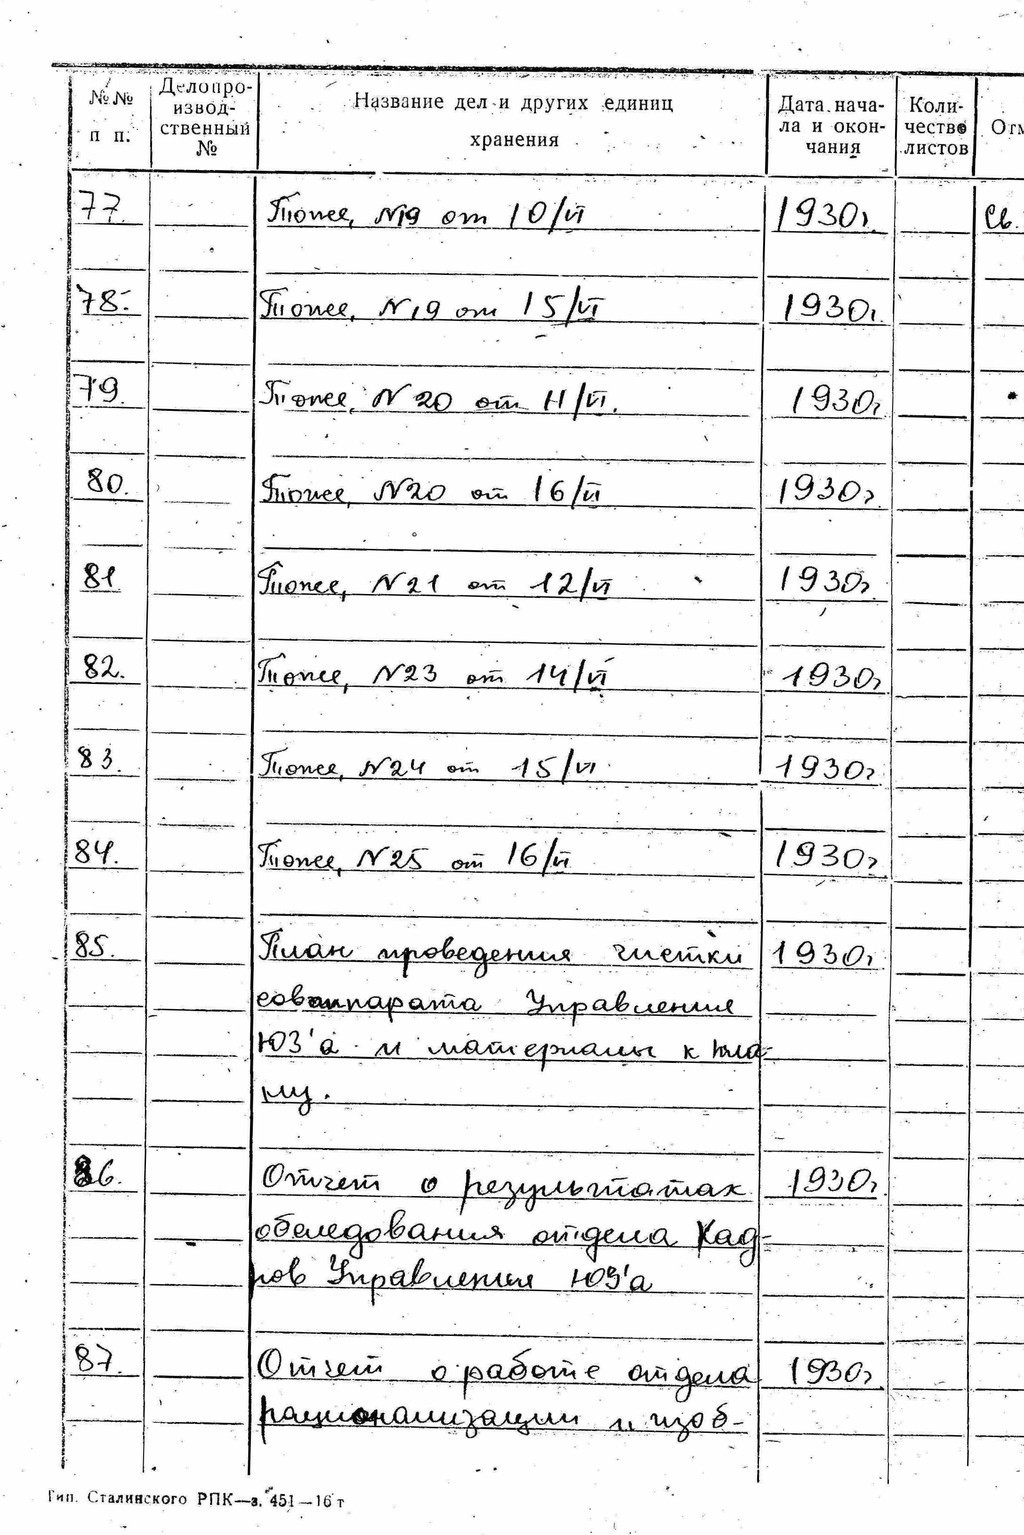 №№ п п.
Делопро-
извод-
ственный
№
Название дел и других единиц
хранения
Дата нача-
ла и окон-
чания
Коли-
чество
листов
77. Тоже, №19 от 10/VI 1930г. Св.
78. Тоже, №19 от 15/VI 1930г.
79. Тоже, №20 от 11/VI. 1930г
80. Тоже, №20 от 16/VI 1930г.
81 Тоже, №21 от 12/VI 1930г.
82. Тоже, №23 от 14/VI 1930г
83. Тоже, №24 от 15/VI 1930г
84. Тоже, №25 от 16/VI 1930г
85. План проведения чистки 1930г
совaппарата Управления
ЮЗ'а и материалы к пла-
ну.
86. Отчет о результатах 1930г.
обследования отдела Кад-
ров Управления ЮЗ'а
87. Отчет о работе отдела 1930г
рационализации и изоб-
Тип. Сталинского РПК—з. 451—16 т